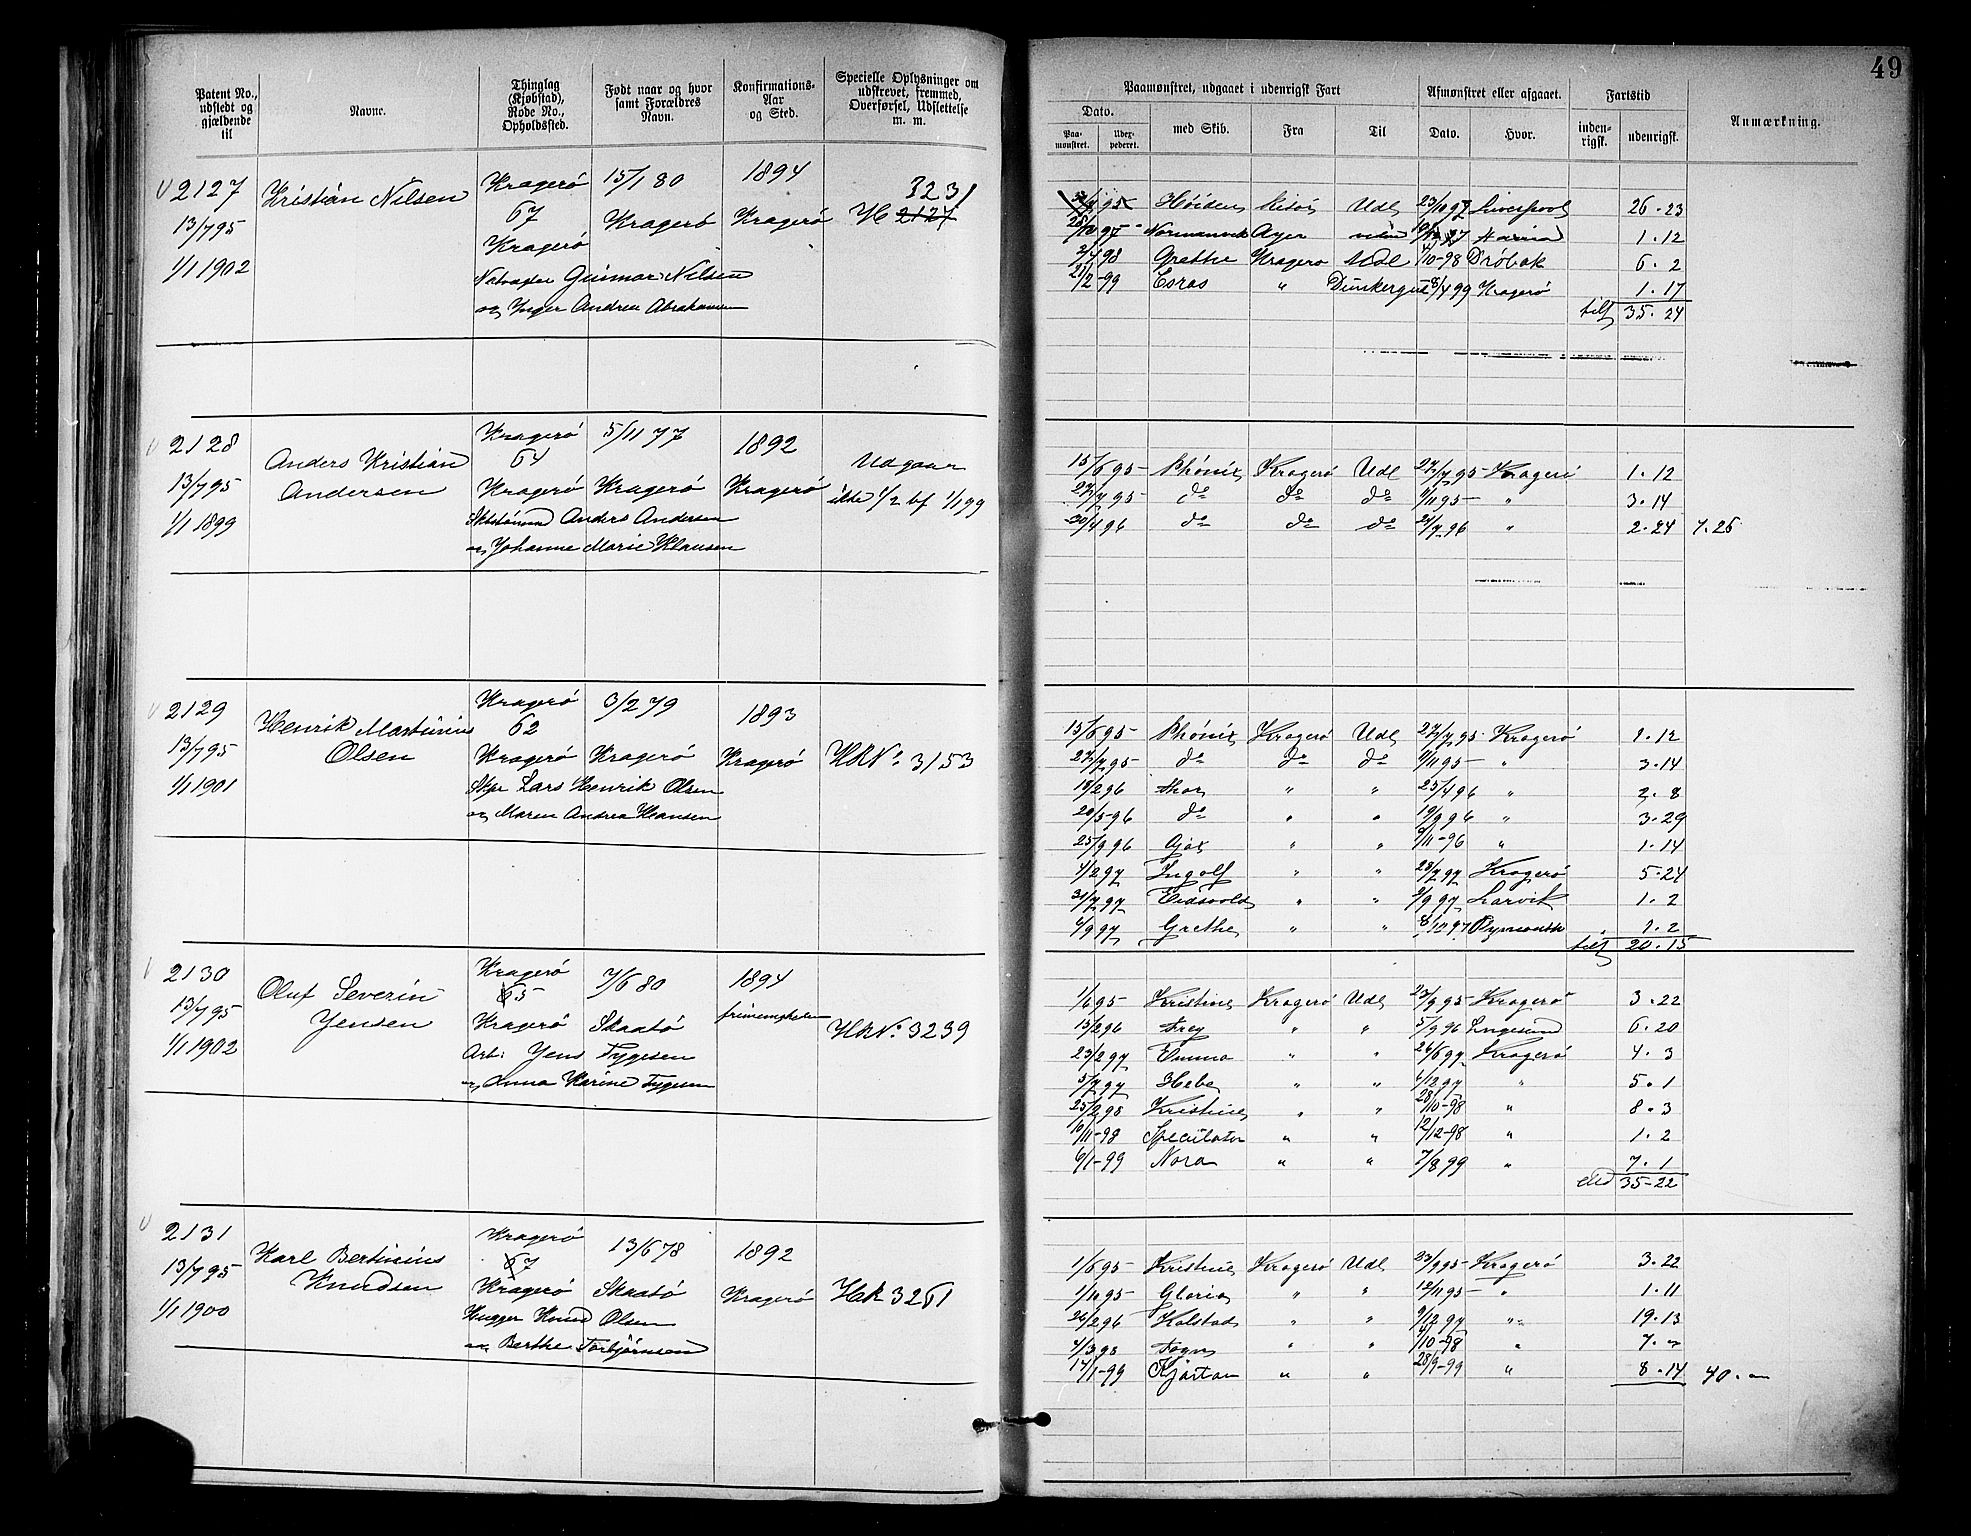 49
Patent No., udstedt og gjældende til
Navne.
Thinglag (Kjøbstad), Rode No., Opholdssted.
Født naar og hvor samt Forældres Navn.
Konfirmations-Aar og Sted.
Specielle Oplysninger om udskrevet, fremmed, Overførsel, Udslettelse m. m.
Paamønstret, udgaaet i udenrigsk Fart
Afmønstret eller afgaaet.
Fartstid
Anmærkning.
Dato.
Paa-mønstret.
Udex-pederet.
med Skib.
Fra
Til
Dato.
Hvor.
inden-rigsk.
udenrigsk.
2127 Kristian Nilsen Kragerø 15/1 80 1894 3231
13/7 95 67 Kragerø Kragerø H 2127
1/1 1902 Kragerø
Gunnar Nilsen
og Inger Andrea Abrahamsen
95 Udl Liverpool 26.23
97 1.12
98 Grethe Kragerø Udl 98 Drøbak 6.2
21/2-99 " 99 Kragerø 1.17
35.24
2128 Anders Kristian Andersen Kragerø 5/11 77 1892 Udgaar
13/7 95 64 Kragerø Kragerø Kragerø ikke 1/2 bf 1/1 99
1/1 1899 Anders Andersen
og Johanne Marie Klausen
15/6 95 Phønix Kragerø Udl 27/7 95 Kragerø 1.12
27/7 95 do do do 95 " 3.14
30/4 96 do do do 96 " 2.24 7.25
2129 Henrik Martinius Olsen Kragerø 3/2 79 1893
13/7 95 62 Kragerø Kragerø Kragerø HRNo 3153
1/1 1901 Skpr Lars Henrik Olsen
og Maren Andrea Hansen
15/6 95 Phønix Kragerø Udl 27/7 95 Kragerø 1.12
27/7 95 do do do 95 " 3.14
19/2 96 Thor " " 25/4 96 " 2.8
20/5-96 do " " 19/9 96 " 3.29
25/9 96 Ajax " " 11-96 " 1.14
1/2 97 Ingolf " " 97 Kragerø 5.24
31/7 97 Eidsvold " " 97 Larvik 1.2
6/9 97 Grethe " " 8/10 97 1.2
20.15
2130 Oluf Severin Jensen Kragerø 7/6 80 1894
13/7 95 65 Kragerø Skaatø HRNo 3239
1/1 1902 Arb: Jens Tygesen
og Anna Karine Tygesen
1/6 95 Kristine Kragerø Udl 23/9 95 Kragerø 3.22
15/2 96 Frey " " 5/9 96 Langesund 6.20
23/2 97 Emma " " 26/6 97 Kragerø 4.3
5/7 97 Hebe " " 6/12 97 " 5.1
25/2 98 Kristine " " 28/10-98 " 8.3
10/11-98 Speculator " " 12/12-98 " 1.2
6/1-99 Nora " " 7/8 99 " 7.1
35-22
2131 Karl Bertinius Knudsen Kragerø 13/6 78 1892
13/7 95 67 Kragerø Skaatø Kragerø HR 3261
1/1 1900 Hugger Knud Olsen
og Berthe Torbjørnsen
1/6 95 Kristine Kragerø Udl 23/9 95 Kragerø 3.22
1/10 95 Gloria " " 12/11 95 " 1.11
26/2 96 Kolstad " " 9/12 97 " 19.13
4/3 98 Fogn " " 10-98 " 7.
14/1-99 Kjartan " " 28/9-99 " 8.14 40.